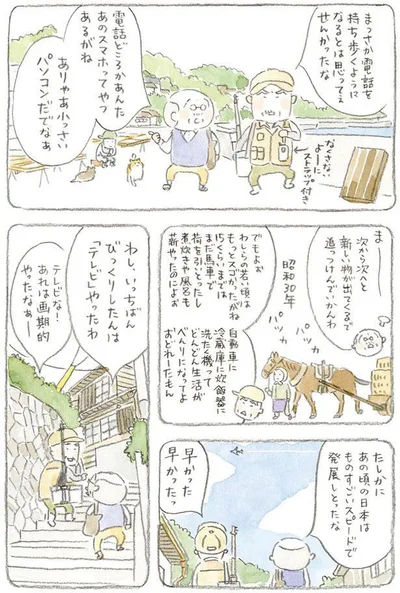 まっさか電話を
持ち歩くように
なるとは思ってぇ
せんかったな
なくさない
よーに
ストラップ付き
電話どころかあんた
あのスマホってやつ
あるがね
ありゃあ小っさい
パソコンだでなぁ
ま
次から次へと
新しい物が出てくるで
追っつけんでいかんわ
昭和30年
パッカ
パッカ
でもよぉ
わしらの若い頃は
もっとスゴかったがね
15くらいまでは
まだ馬車で
荷を引いったし
煮炊きや風呂も
薪やったのによぉ
自動車に
冷蔵庫に炊飯器に
洗たく機って
どんどん生活が
べんりになってよ
おどれーたもん
たしかに
あの頃の日本は
ものすごいスピードで
発展しとったな
早かった
早かったっ
わし、いっちばん
びっくりしたんは
「テレビ」やったわ
テレビな!
あれは画期的
やったなぁー